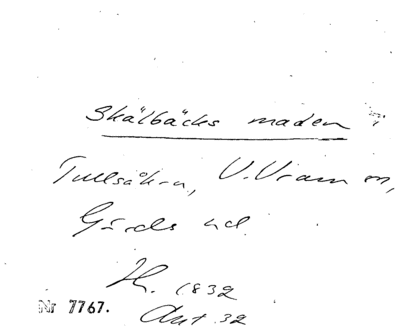 Skälbäcks maden
Tullsåkra, V. Vram sn,
Gärds hd.
H. 1832
Akt 32
Nr 7767.